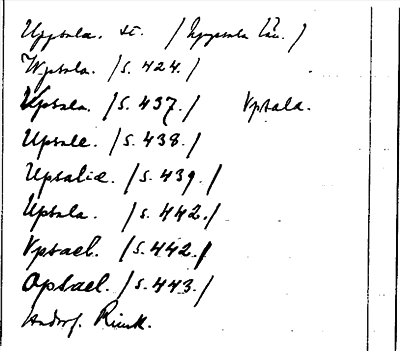 Uppsala. st. /Uppsala län./
Wpsala. /S. 424./
Upsala. /S. 437./ Vpsala.
Upsale. /S. 438./
Upsaliæ. /S. 439./
Upsala. /S. 442./
Vpsael. /S. 442./
Opsael. /S. 443./